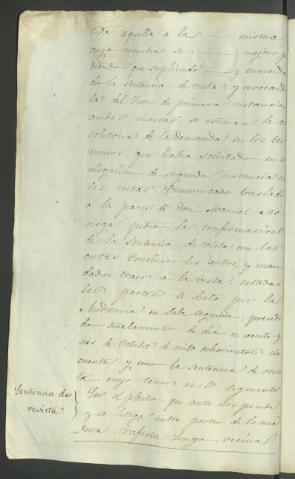 aquella á la misma
cuyo nombre se mejoro pi
diendo que supliendo y enmenda
da la sentencia de vista y revocando
la del Juez de primera instancia
ambas
solutoria de la demanda en los ter
minos que habia solicitado en su
alegacion de segunda instancia
las costas. Comunicado traslado
á la parte de don Manuel
pidió la confirmacion
de la sentencia de vista con las
costas Conclusos los autos y man
dados traer á la vista, citadas
las partes se dictó por la
Audiencia en Sala segunda previo
señalamiento de dia en veinte y
seis de Octubre de mil ochocientos cin
cuenta y uno la sentencia de revis
ta cuyo tenor es el siguiente
Sentencia de
revista
En el pleito que ante nos pende
y se litiga entre partes de la una
doña Rafaela vecina